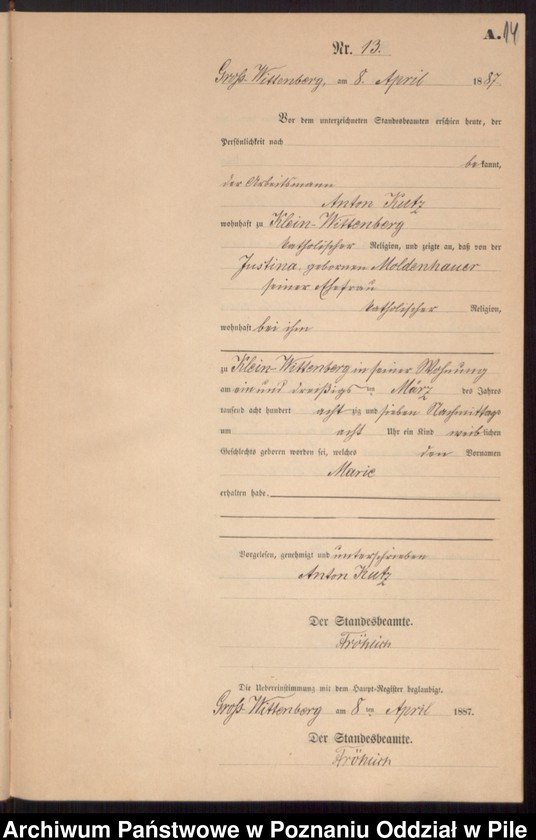 A. 14
Nr. 13.
Groß Wittenberg, am 8. April 1887
Vor dem unterzeichneten Standesbeamten erschien heute, der
Persönlichkeit nach
be kannt,
der Arbeitsmann
Anton Kutz
wohnhaft zu Klein-Wittenberg
katholischer Religion, und zeigte an, daß von der
Justina, gebornen Moldenhauer
seiner Ehefrau
katholischer Religion,
wohnhaft bei ihm
zu Klein-Wittenberg in seiner Wohnung
am ein und dreißigs ten März des Jahres
tausend acht hundert acht zig und sieben Nachmittags
um acht Uhr ein Kind weib lichen
Geschlechts geboren worden sei, welches den Vornamen
Marie
erhalten habe.
Vorgelesen, genehmigt und unterschrieben
Anton Kutz
Der Standesbeamte.
Fröhlich
Die Uebereinstimmung mit dem Haupt-Register beglaubigt.
Groß Wittenberg am 8 ten April 1887.
Der Standesbeamte.
Fröhlich
Archiwum Państwowe w Poznaniu Oddział w Pile